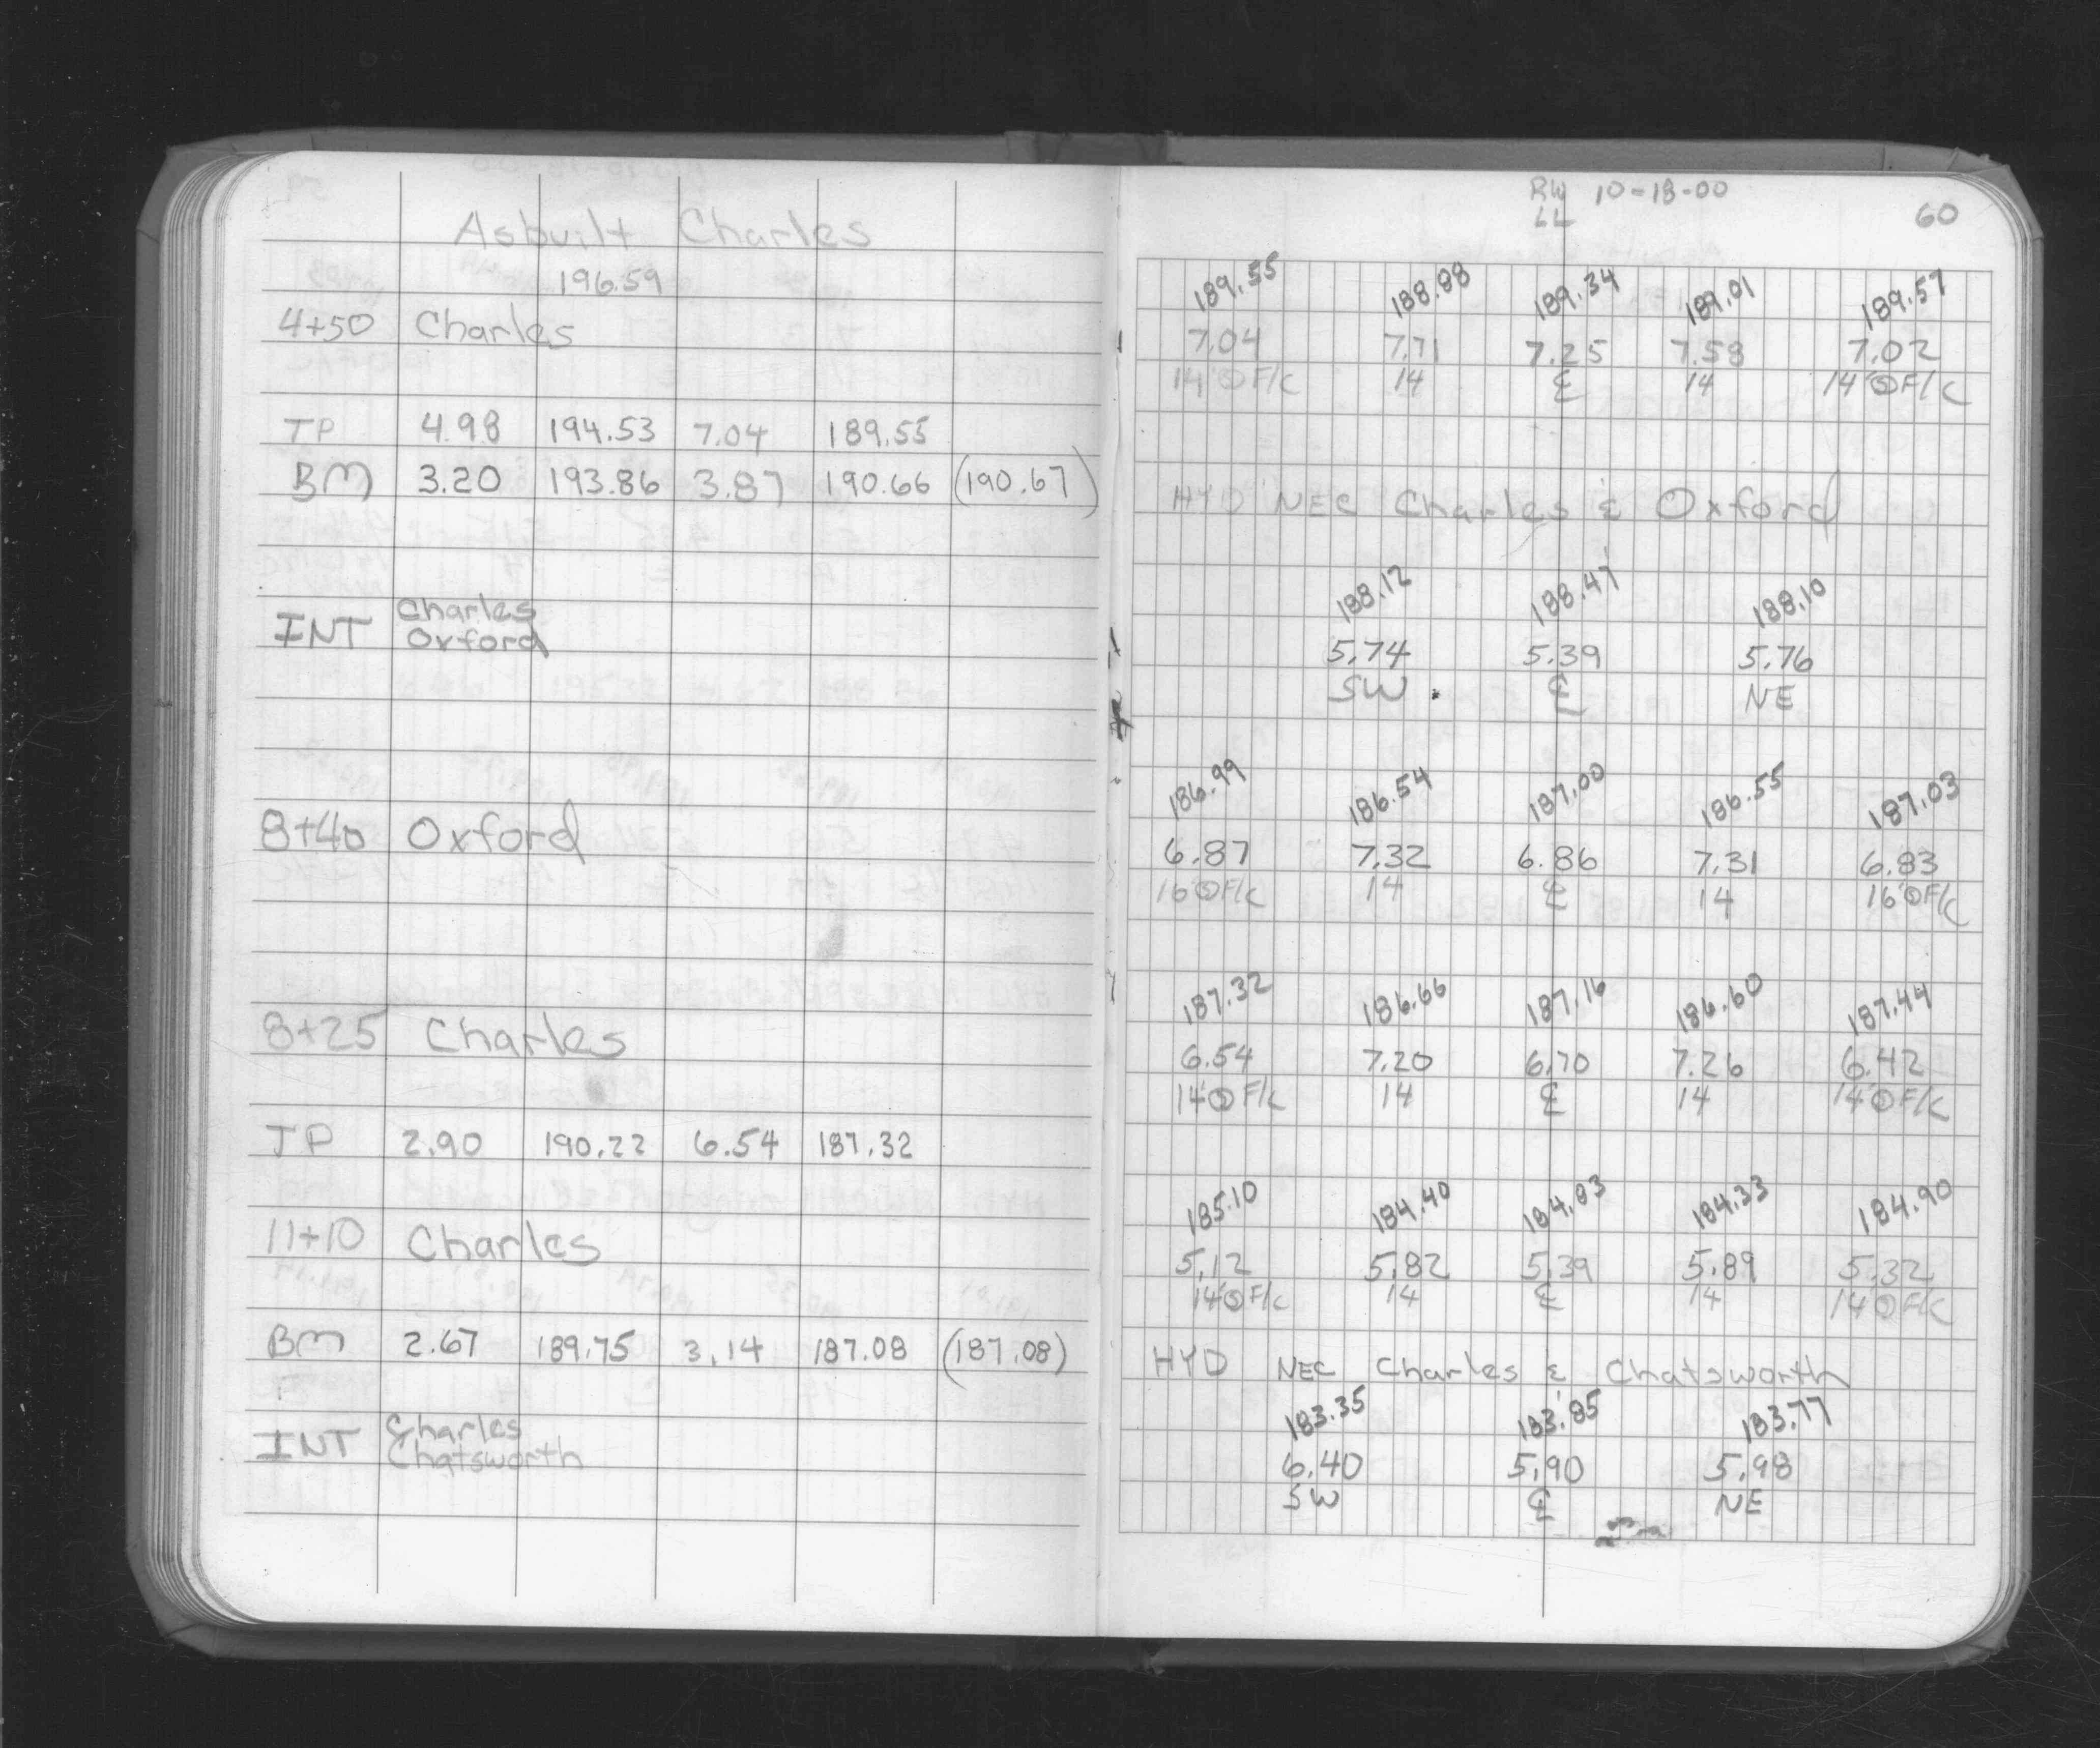 Asbuilt Charles
196.59
4+50 Charles
TP 4.98 194.53 7.04 189.55
BM 3.20 193.86 3.87 190.66 (190.67)
INT Charles
Oxford
8+40 Oxford
8+25 Charles
TP 2.90 190.22 6.54 187.32
11+10 Charles
BM 2.67 189.75 3.14 187.08 (187.08)
INT Charles
Chatsworth
RW 10-18-00
LL
60
189.55 188.88 189.34 189.01 189.57
7.04 7.71 7.25 7.58 7.02
14 F/C 14 ℄ 14 14 F/C
HYD NEC Charles & Oxford
188.12 188.47 188.10
5.74 5.39 5.76
SW ℄ NE
186.99 186.54 187.00 186.55 187.03
6.87 7.32 6.86 7.31 6.83
16 F/C 14 ℄ 14 16 F/C
187.32 186.66 187.16 186.60 187.44
6.54 7.20 6.70 7.26 6.42
14 F/C 14 ℄ 14 14 F/C
185.10 184.40 184.83 184.33 184.90
5.12 5.82 5.39 5.89 5.32
14 F/C 14 ℄ 14 14 F/C
HYD NEC Charles & Chatsworth
183.35 183.85 183.77
6.40 5.90 5.98
SW ℄ NE